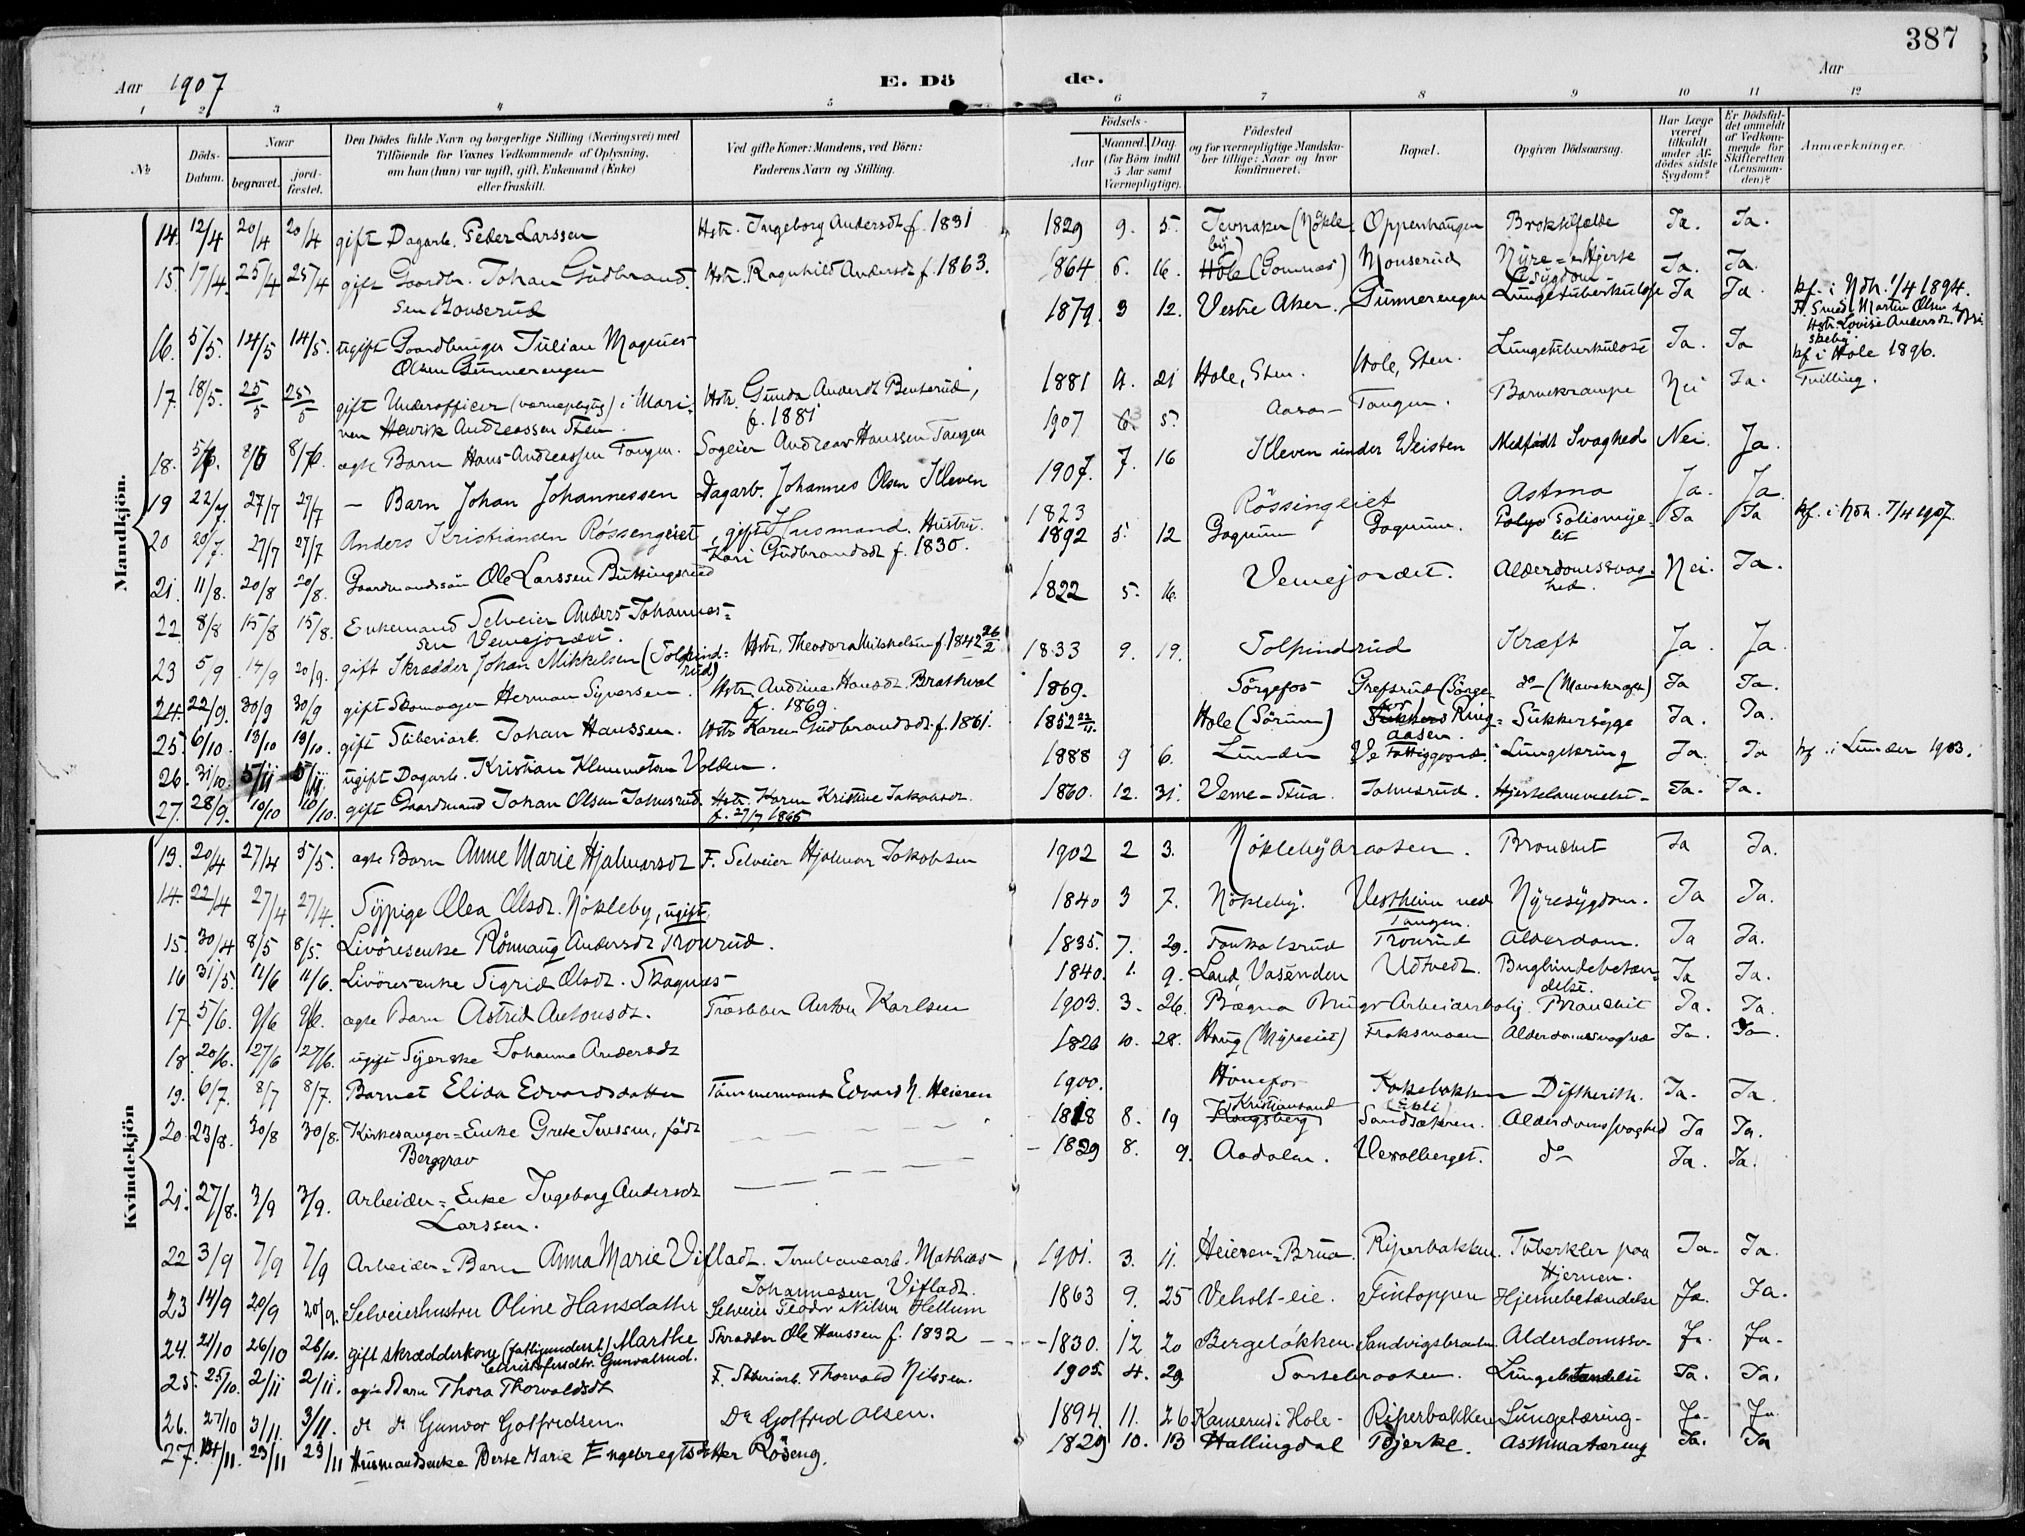 387
Aar 1907
E. Dö de.
Aar
1 2 3 4 5 6 7 8 9 10 11 12
№
Döds-Datum.
Naar
begravet.
jord-fæstet.
Den Dödes fulde Navn og borgerlige Stilling (Næringsvei) med
Tilföiende for Voxnes Vedkommende af Oplysning,
om han (hun) var ugift, gift, Enkemand (Enke)
eller fraskilt.
Ved gifte Koner: Mandens, ved Börn:
Faderens Navn og Stilling.
Födsels-
Aar
Maaned. Dag.
(for Börn indtil
5 Aar samt
Værnepligtige).
Födested
og for værnepligtige Mandska-
ber tillige: Naar og hvor
konfirmeret.
Bopæl.
Opgiven Dödsaarsag.
Har Læge
været
tilkaldt
under Af-
dødes sidste
Sygdom?
Er Dödsfal-
det anmeldt
af Vedkom-
mende for
Skifteretten
(Lensman-
den)?
Anmærkninger.
Mandkjön.
14. 12/4 20/4 20/4 gift Dagarb. Peder Larssen Hstr. Ingeborg Andersdt f. 1831 1829 9. 5. Jevnaker (Nökle-
by) Oppenhaugen Ja. Ja.
15. 17/4 25/4 25/4 gift Gaardbr. Johan Gudbrand-
sen Monserud Hstr. Ragnhild Andersdt f. 1863. 1864 6. 16. Hole (Gomnæs) Monserud Nyre- Hjerte
sygdom Ja. Ja.
16. 5/5. 14/5 14/5. ugift Gaardbruger Julian Magnus
Olsen Gunnerengen 1879. 3 12. Vestre Aker. Gunnerengen Lungetuberkulose Ja Ja kf. i Ndh. 1/4 1894.
F. Smed Martin Olsen &
Hstr. Lovise Andersdt.
17. 18/5. 25/5 25/5 gift Underofficer (værnepligtig) i Mari-
nen Henrik Andreassen Sten. Hstr. Gunda Andersdt Benterud,
f. 1881 1881 4. 21 Hole, Sten. Hole, Sten. Lungetuberkulose Ja. Ja kf i Hole 1896.
18. 5/6. 8/6 8/6. ægte Barn Hans Andreassen Tangen. Sogeier Andreas Hanssen Tangen 1907 6. 5. Aasas- Tangen. Barnekrampe Nei Ja. Tvilling.
19 22/7. 27/7 27/7 — Barn Johan Johannessen Dagarb. Johannes Olsen Kleven 1907. 7. 16 Kleven under Veisten Medfödt Svaghed Nei. Ja.
20 20/7. 27/7 27/7 Anders Kristiansen Rössengeiet, gift Husmand. Hustru.
Kari Gudbrandsdt f. 1830. 1823 Rössingeiet Astma Ja. Ja.
21. 11/8. 20/8 20/8. Gaardmandssön Ole Larssen Buttingsrud 1892 5. 12 Gagnum Gagnum. Polyo Poliomye-
lit Ja Ja kf. i Ndh. 7/4 1907.
22. 8/8 15/8 15/8. Enkemand Selveier Anders Johannes-
sen Vemejordet. 1822 5. 16. Vemejordet. Alderdomssvag-
hed. Nei. Ja.
23 5/9 14/9 20/9. gift Skrædder Johan Mikkelsen (Tolpind-
rud) Hstr. Theodora Mikkelsen f 1842 26/2 1833 9. 19. Tolpindrud Kræft Ja. Ja.
24. 22/9. 30/9 30/9 gift Skomager Herman Syversen. Hstr. Andrine Hansdt. Brathval
f. 1869. 1869. Sörgefos Grefsrud (Sörge-
fos) do (Mavekræft) Ja Ja.
25. 6/10. 13/10 13/10. gift Sliberiarb. Johan Hanssen. Hstr Karen Gudbrandsdt. f. 1861. 1852 22/11. Hole (Sörum) Ring-
aasen. Sukkersyge Ja. Ja.
26. 31/10. 5/11 5/11. ugift Dagarb. Kristian Klemmetsen Volden. 1888 9 6. Lunder Ve Fattiggaard. Lungetæring Ja. Ja kf. i Lunder 1903.
27. 28/9. 10/10 10/10. gift Gaardmand Johan Olsen Johnsrud Hstr. Karen Kristine Jakobsdt.
f. 27/7 1865 1860. 12. 31. Veme-Stua Johnsrud. Hjertelammelse- Ja. Ja.
Kvindekjön
13. 20/4 27/4 5/5. ægte Barn Anne Marie Hjalmarsdt F. Selveier Hjalmar Jakobsen 1902 2 3. Nöklebybraaten. Bronchit Ja Ja.
14. 22/4 27/4 27/4. Sypige Olea Olsdt. Nökleby, ugift. 1840 3 7. Nökleby. Vestheim ved
Tangen. Nyresygdom. Ja Ja.
15. 30/4 8/5 8/5. Livöresenke Rönnaug Andersdt Tronrud. 1835. 7. 29. Tronrud Alderdom. Ja Ja.
16 31/5. 11/6 11/6. Livöresenke Sigrid Olsdt. Skagnæs- 1840. 1. 9. Land, Vasenden Udtvedt. Bughindebetæn-
delse. Ja Ja.
17. 5/6. 9/6 9/6. ægte Barn Astrid Antonsdt. Træsliber Anton Karlsen 1903. 3. 26. Bægna Brugs Arbeiderbolig. Bronchit Ja. Ja.
18 20/6. 27/6 27/6. ugift Syerske Johanne Andersdt 1826 10. 28. Haug (Myreeiet) Froksmoen Alderdomssvaghed Ja. Ja.
19. 6/7. 8/7 8/7. Barnet Elida Edvardsdatter Tömmermand Edvard N. Heieren 1900. Hönefos Kokebakken Diftherith. Ja. Ja.
20. 23/8. 30/8 30/8. Kirkesanger-Enke Grete Jenssen, födt
Berggrav 1818 8. 19 Kristiansand
Kongsberg Sandsækren. Alderdomssvaghed Ja Ja.
21. 27/8. 3/9 3/9. Arbeider-Enke Ingeborg Andersdt
Larssen. 1829 8. 9. Aadalen. Veralberget. do Ja. Ja.
22 3/9 7/9 7/9 Arbeider-Barn Anna Marie Vifladt. Jernbanearb. Mathias
Johannesen Vifladt. 1901. 3. 11. Heieren-Brua. Riperbakken. Tuberkler paa
Hjernen. Ja. Ja.
23 14/9 20/9 20/9. Selveierhustru Oline Hansdatter Selveier Teodor Nilsen Hellum 1863 9. 25 Veholt-eie. Tintoppen Hjernebetændelse Ja. Ja.
24. 21/10 26/10 26/10. gift skrædderkone (fattigunderst.) Marthe
Christofersdtr. Gunvalrud. Skrædder Ole Hanssen f. 1832 1830. 12 20 Bergelökken Sandvigsbraaten Alderdomssv- Ja. Ja-
25. 25/10. 2/11 2/11. ægte Barn Thora Thorvaldsdt F. Sliberiarb. Thorvald Nilssen. 1905. 4. 29 Lungebetændelse Ja. Ja.
26. 27/10 3/11. 3/11. do do Gunvor Golfredsen. Do Golfred Olsen. 1894. 11. 26 i Hole- Riperbakken Lungetæring- Ja- Ja
27. 14/11. 23/11 23/11 Husmandsenke Berte Marie Engebregtsdatter Röseng. 1829 10. 13 Hallingdal Bjerke. Asthmatæring Ja. Ja